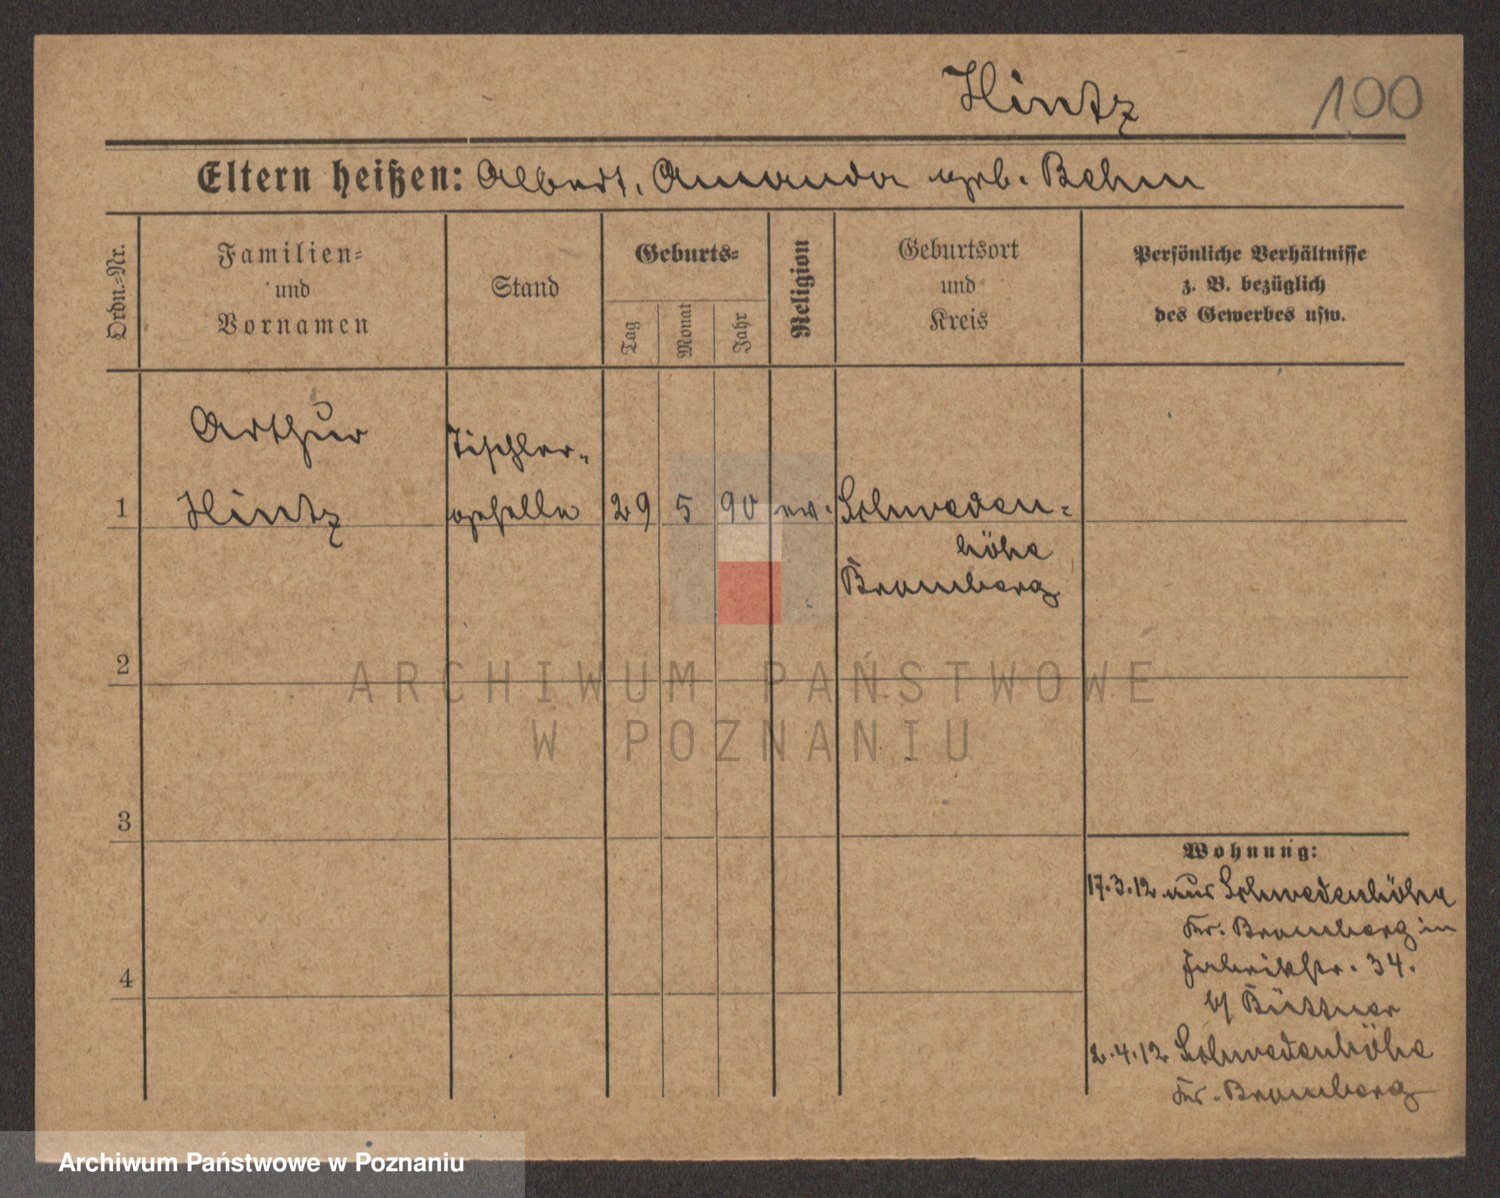 Hintz
100
Eltern heißen: Albert, Amanda geb. Behm
Ordn.=Nr.
Familien=
und
Vornamen
Stand
Geburts=
Tag
Monat
Jahr
Religion
Geburtsort
und
Kreis
Persönliche Verhältnisse
z. B. bezüglich
des Gewerbes usw.
Arthur
Tischler-
1 Hintz geselle 29 5 90 ev. Schweden=
höhe
Bromberg
2
ARCHIWUM PAŃSTWOWE
W POZNANIU
3
Wohnung:
17.3.12 aus Schwedenhöhe
Kr. Bromberg in
Fabrikstr. 34.
4
b/ Büttner
2.4.12 Schwedenhöhe
Kr. Bromberg
Archiwum Państwowe w Poznaniu